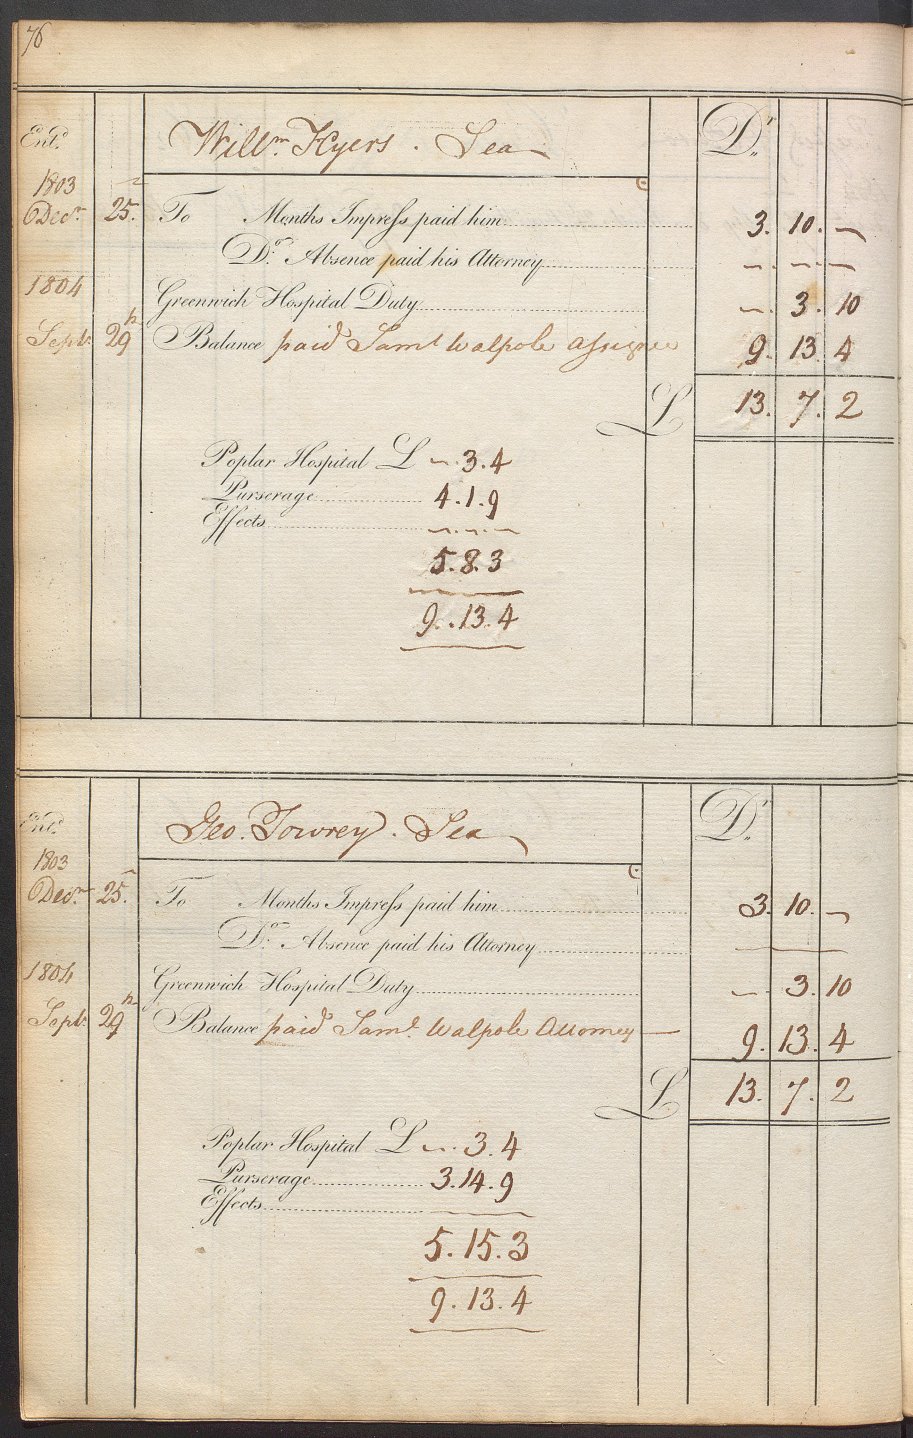 76
Entd. Willm. Kyers . Sea Dr.
1803
Decr. 25. To Months Impress paid him 3. 10. –
Do. Absence paid his Attorney – – –
1804
Greenwich Hospital Duty – 3. 10
Septr. 29th Balance paid Saml Walpole Assignee 9. 13. 4
£ 13. 7. 2
Poplar Hospital £ – . 3. 4
Purserage 4. 1. 9
Effects – . – . –
5. 8. 3
9. 13. 4
Entd. Geo. Towrey . Sea Dr.
1803
Decr. 25. To Months Impress paid him 3. 10. –
Do. Absence paid his Attorney –
1804
Greenwich Hospital Duty – . 3. 10
Septr. 29th Balance paid Saml. Walpole Attorney – 9. 13. 4
£ 13. 7. 2
Poplar Hospital £ – . 3. 4
Purserage 3. 14. 9
Effects –
5. 15. 3
9. 13. 4